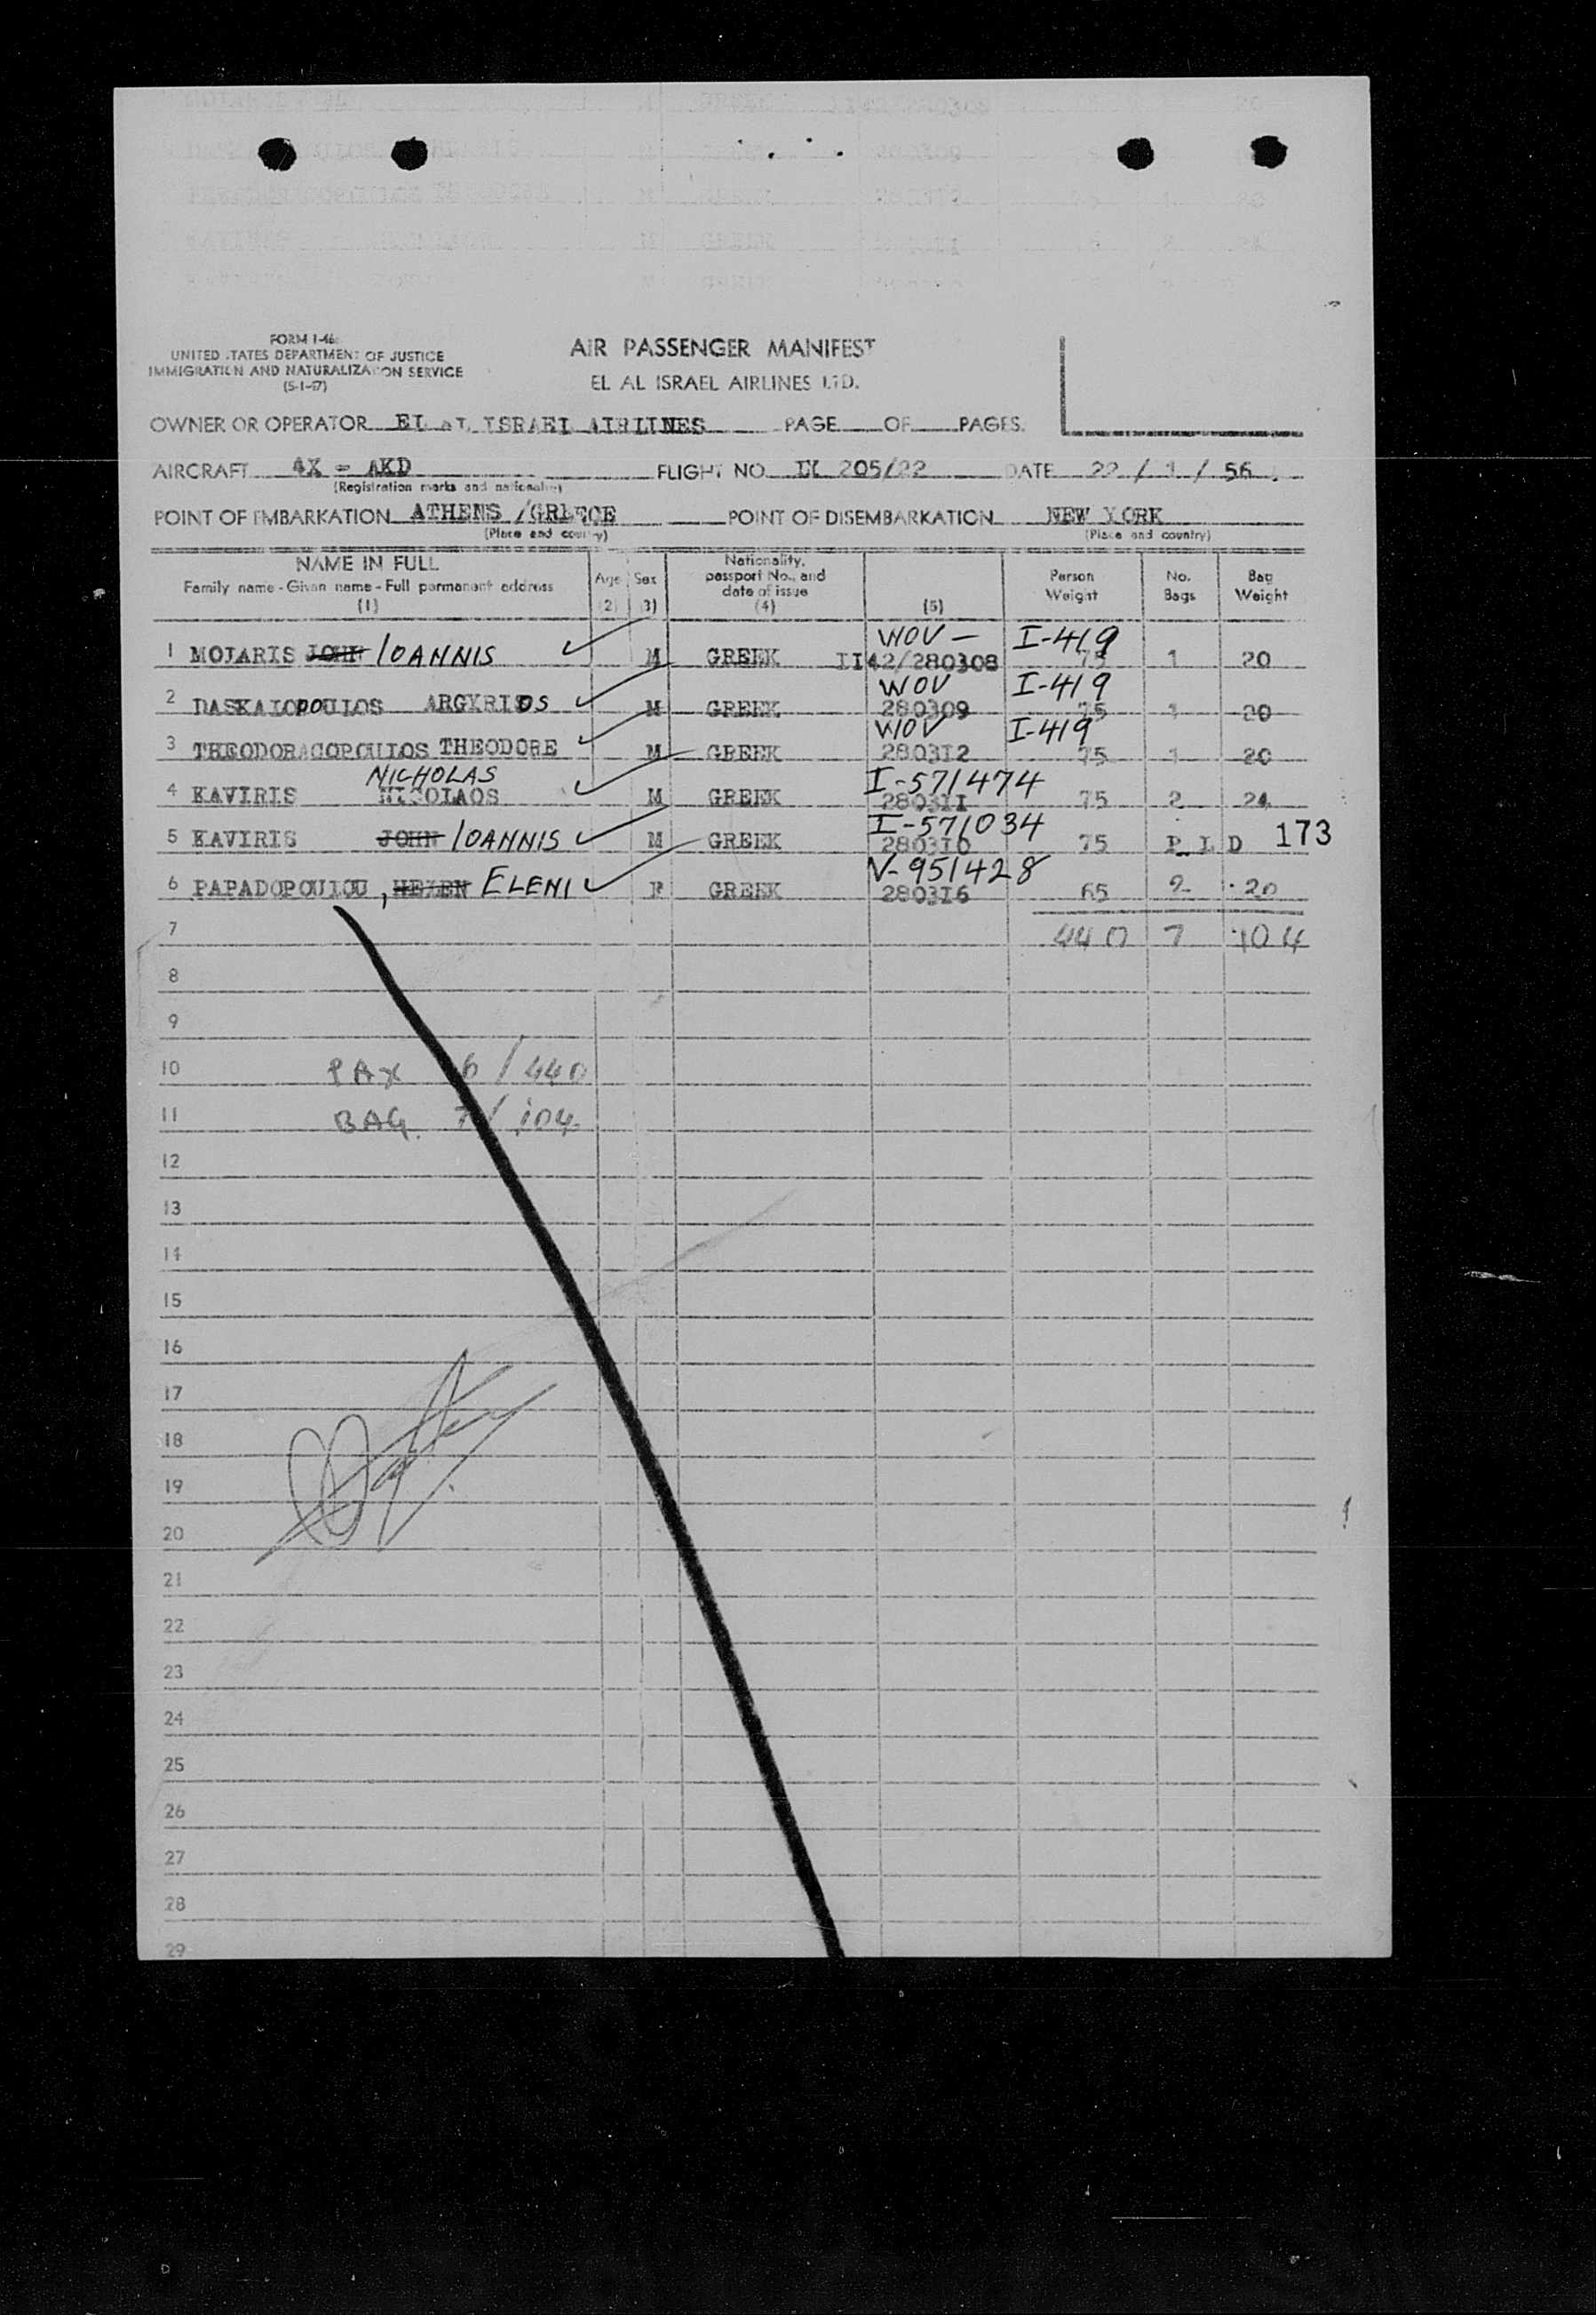 FORM I-466
UNITED STATES DEPARTMENT OF JUSTICE
IMMIGRATION AND NATURALIZATION SERVICE
AIR PASSENGER MANIFEST
EL AL ISRAEL AIRLINES LTD.
OWNER OR OPERATOR EL AL ISRAEL AIRLINES PAGE OF PAGES.
AIRCRAFT 4X - AKD FLIGHT NO. LY 205/22 DATE 22 / 1 / 56
(Registration marks and nationality)
POINT OF EMBARKATION ATHENS /GREECE POINT OF DISEMBARKATION NEW YORK
(Place and country) (Place and country)
NAME IN FULL
Family name - Given name - Full permanent address
(1)
Age
(2)
Sex
(3)
Nationality,
passport No., and
date of issue
(4)
(5)
Person
Weight
No.
Bags
Bag
Weight
WOV - I-419
1 MOLARIS JOHN IOANNIS M GREEK II42/280308 75 1 20
WOV I-419
2 DASKALOPOULOS ARGYRIOS M GREEK 280309 75 1 20
WOV I-419
3 THEODORACOPOULOS THEODORE M GREEK 280312 75 1 20
NICHOLAS I-571474
4 KAVIRIS NICOLAOS M GREEK 280311 75 2 24
I-571034
5 KAVIRIS JOHN IOANNIS M GREEK 280310 75 P L D 173
V-951428
6 PAPADOPOULOU, HELEN ELENI F GREEK 280316 65 2 20
7 440 7 104
8
9
10 PAX 6 / 440
11 BAG. 7 / 104
12
13
14
15
16
17
18
19
20
21
22
23
24
25
26
27
28
29